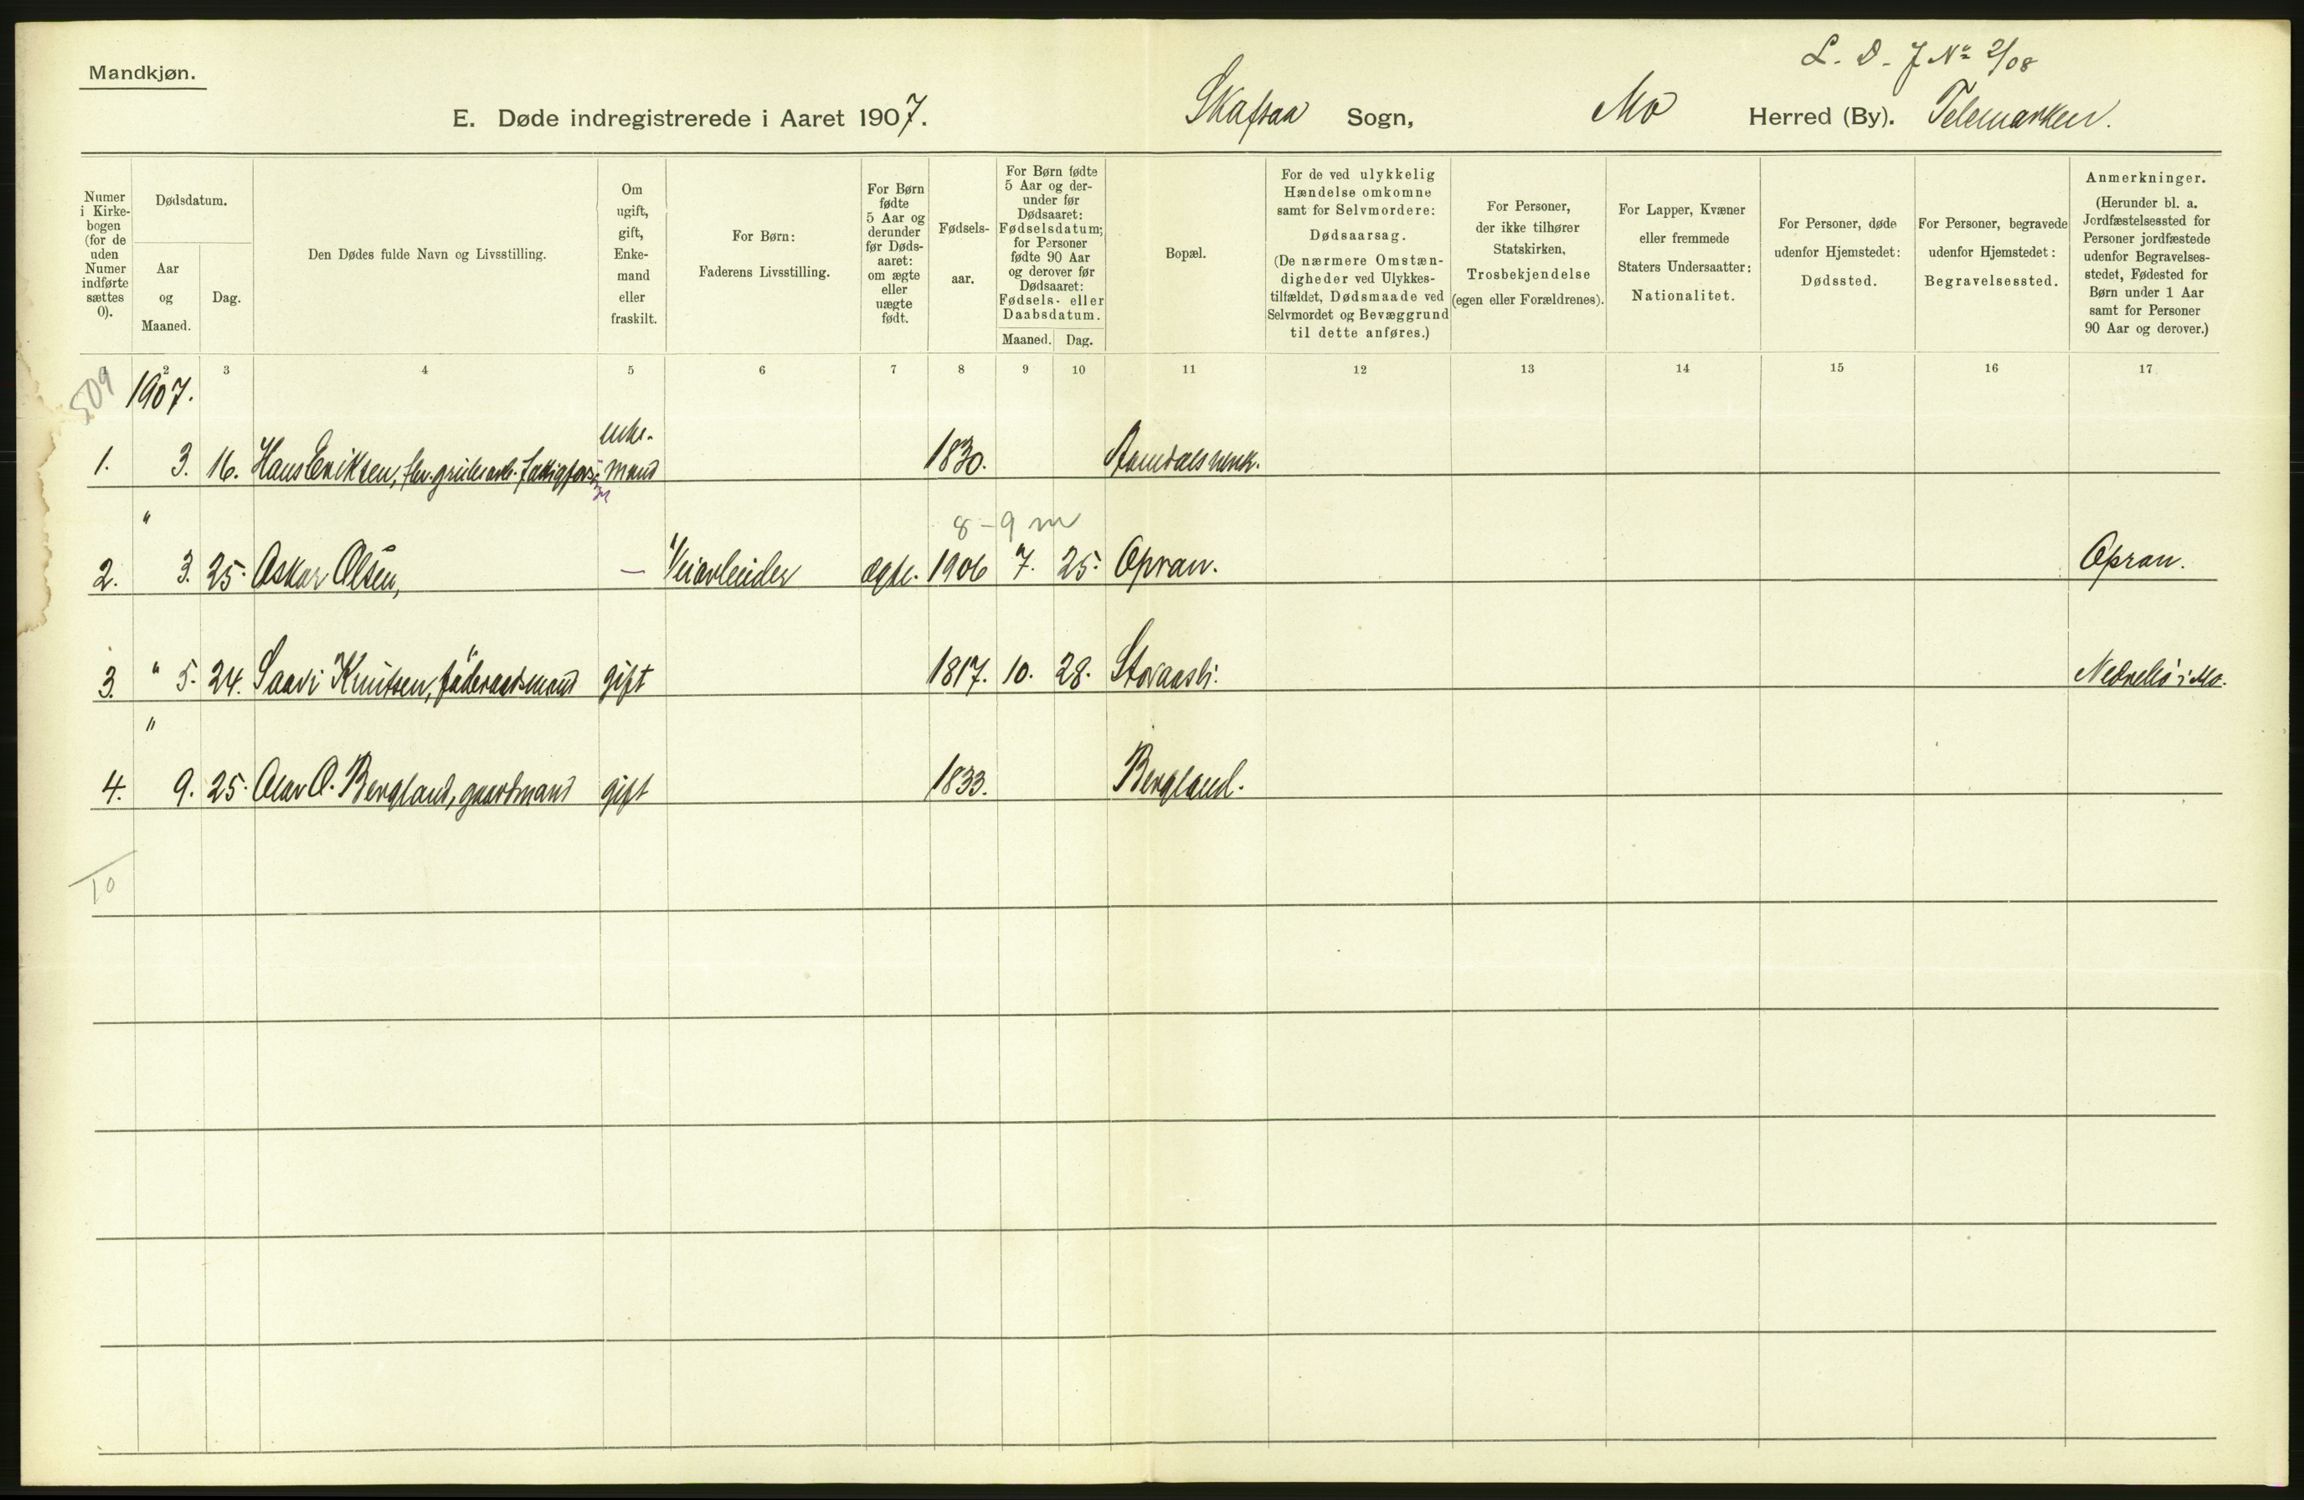 L. D. J No 2/08
Mandkjøn.
E. Døde indregistrerede i Aaret 1907. Skafsaa Sogn, Mo Herred (By). Telemarken.
Numer i Kirkebogen (for de uden Numer indførte sættes 0).
Dødsdatum.
Aar og Maaned.
Dag.
Den Dødes fulde Navn og Livsstilling.
Om ugift, gift, Enkemand eller fraskilt.
For Børn: Faderens Livsstilling.
For Børn fødte 5 Aar og derunder før Dødsaaret: om ægte eller uægte født.
Fødselsaar.
For Børn fødte 5 Aar og derunder før Dødsaaret: Fødselsdatum; for Personer fødte 90 Aar og derover før Dødsaaret: Fødsels- eller Daabsdatum.
Maaned. Dag.
Bopæl.
For de ved ulykkelig Hændelse omkomne samt for Selvmordere: Dødsaarsag. (De nærmere Omstændigheder ved Ulykkestilfældet, Dødsmaade ved Selvmordet og Bevæggrund til dette anføres.)
For Personer, der ikke tilhører Statskirken, Trosbekjendelse (egen eller Forældrenes).
For Lapper, Kvæner eller fremmede Staters Undersaatter: Nationalitet.
For Personer, døde udenfor Hjemstedet: Dødssted.
For Personer, begravede udenfor Hjemstedet: Begravelsessted.
Anmerkninger. (Herunder bl. a. Jordfæstelsessted for Personer jordfæstede udenfor Begravelsesstedet, Fødested for Børn under 1 Aar samt for Personer 90 Aar og derover.)
1 2 3 4 5 6 7 8 9 10 11 12 13 14 15 16 17
509 1907.
1. 3. 16. Hans Eriksen, enkemand 1830.
" 8-9 m
2. 3. 25. Oskar Olsen, — Veiarbeider ægte. 1906 7. 25. Opran. Opran.
3. " 5. 24. Saavi Knutsen, føderaadsmand gift 1817. 10. 28. Stovaasli.
"
4. 9. 25. Olav O. Bergland, gaardmand gift 1833. Bergland.
10